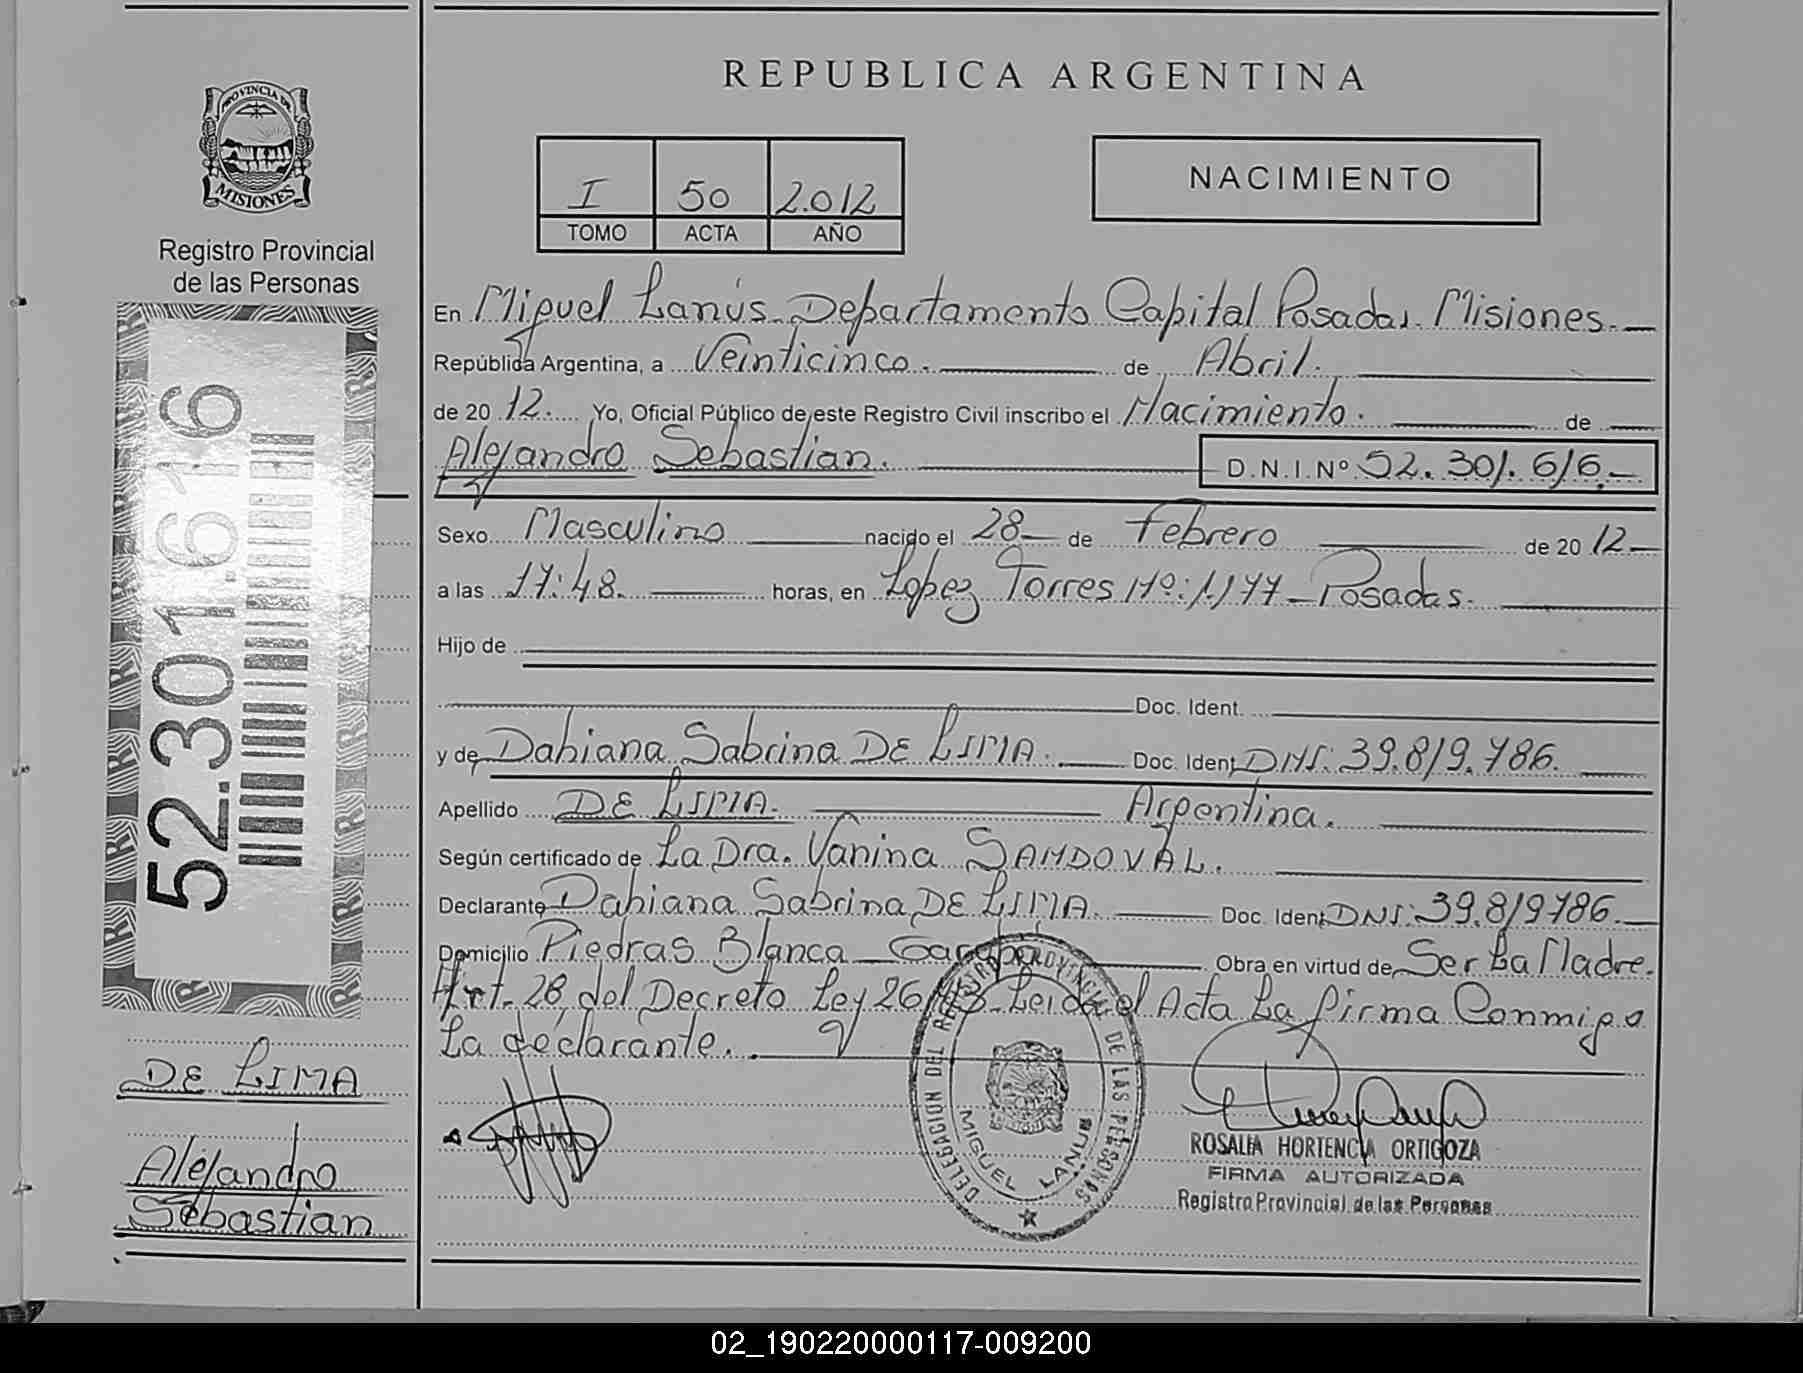 REPUBLICA ARGENTINA
PROVINCIA DE
MISIONES
Registro Provincial
de las Personas
I 50 2.012
TOMO ACTA AÑO
NACIMIENTO
52.301.616
En Miguel Lanús Departamento Capital Posadas. Misiones.
República Argentina, a Veinticinco. de Abril.
de 20 12. Yo, Oficial Público de este Registro Civil inscribo el Nacimiento. de
Alejandro Sebastian. D.N.I.Nº 52.301.616.
Sexo Masculino nacido el 28 de febrero de 20 12
a las 17:48. horas, en Lopez Torres Nº: 1.177 Posadas.
Hijo de
Doc. Ident.
y de Dahiana Sabrina DE LIMA. Doc. Ident DNI: 39.819.786.
Apellido DE LIMA. Argentina.
Según certificado de La Dra. Vanina SANDOVAL.
Declarante Dahiana Sabrina DE LIMA. Doc. Ident DNI: 39.819786.
Domicilio Piedras Blanca Obra en virtud de Ser La Madre.
Art. 28 del Decreto Ley Leida el Acta La firma Conmigo
La declarante.
DE LIMA
Alejandro
Sebastian
DELEGACION DEL REGISTRO PROVINCIAL DE LAS PERSONAS
MIGUEL LANUS
ROSALIA HORTENCIA ORTIGOZA
FIRMA AUTORIZADA
Registro Provincial de las Personas
02_190220000117-009200